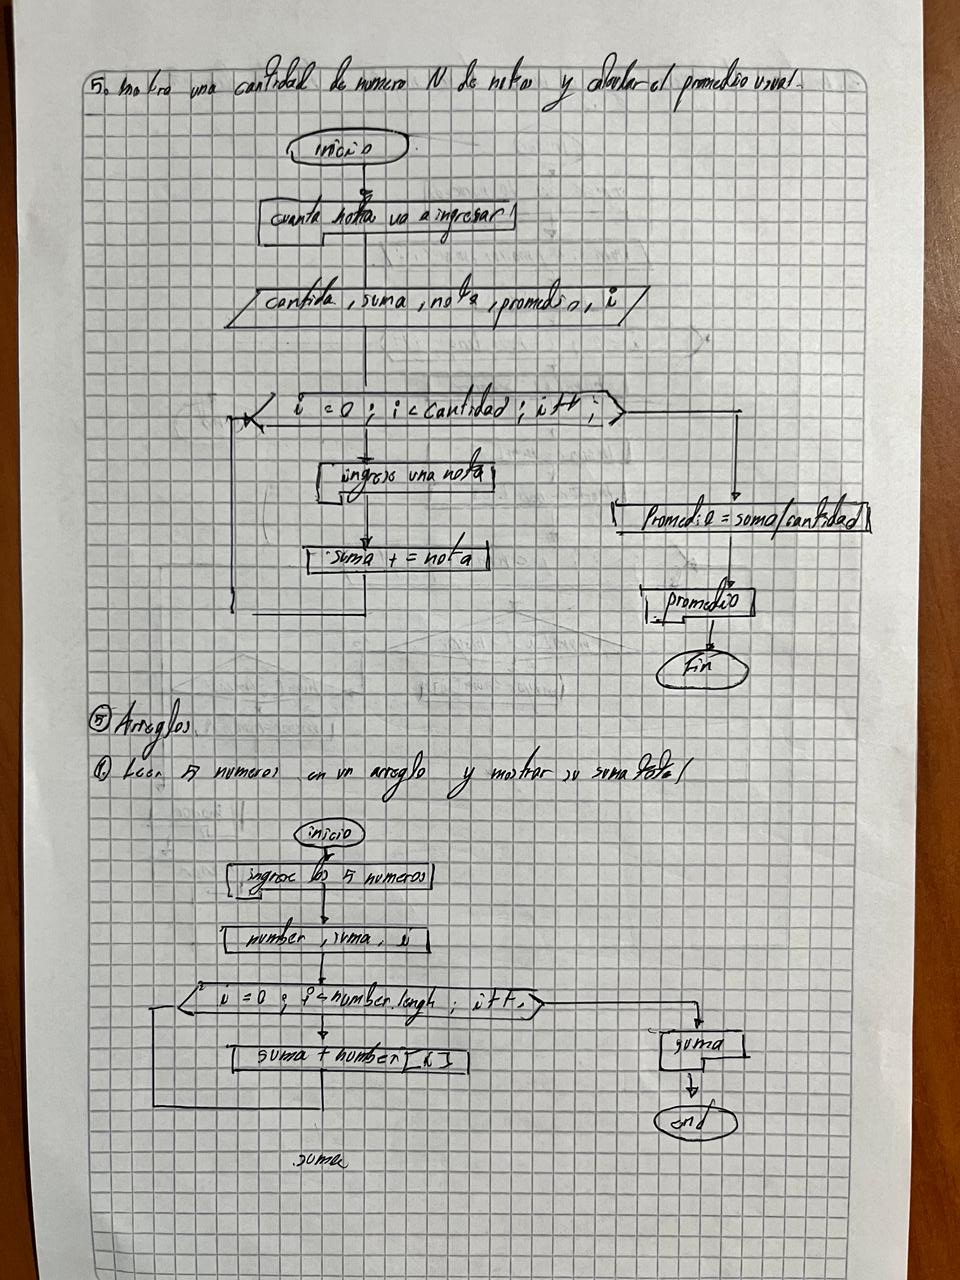 5. una cantidad de numero N de notas y calcular el promedio usual.
inicio
cuanta nota va a ingresar
cantida, suma, nota, promedio, i
i = 0 ; i < cantidad ; i++ ;
ingrese una nota
suma + = nota
Promedio = suma/cantidad
promedio
Fin
⑤ Arreglos
①. Leer 5 numeros en un arreglo y mostrar su suma total
inicio
ingrese los 5 numeros
number, suma, i
i = 0 ; i < number.lengh ; i++.
suma + number [i]
suma
end
suma